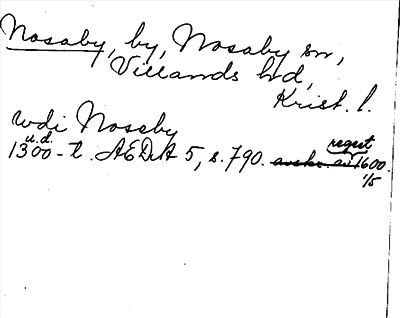 Nosaby, by, Nosaby sn,
Villands hd,
Krist. l.
wdi Nossby
u.d. regest
1300-t. AEDA 5, s. 790. avskr. av 1600.
1/5